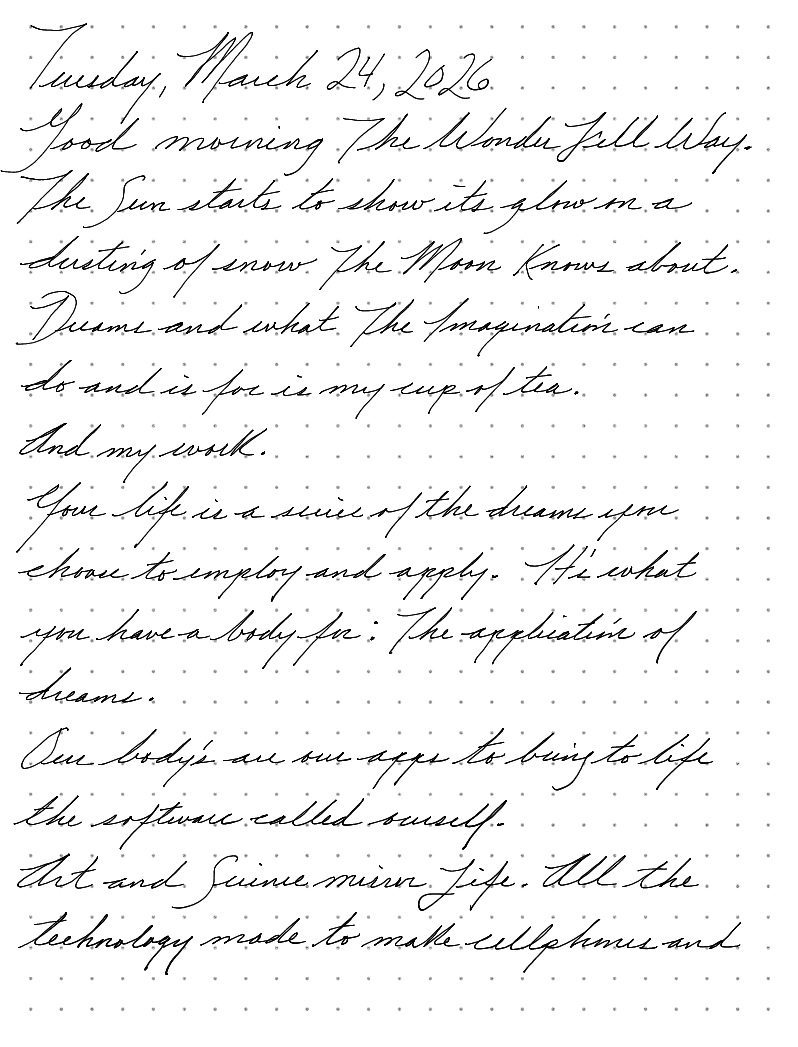 Tuesday, March 24, 2026
Good morning The Wonder Full Way.
The Sun starts to show its glow on a
dusting of snow The Moon Knows about.
Dreams and what The Imagination can
do and is for is my cup of tea.
And my work.
Your life is a series of the dreams you
choose to employ and apply. It's what
you have a body for: The application of
dreams.
Our body's are our apps to bring to life
the software called ourself.
Art and Science mirror Life. All the
technology made to make cellphones and